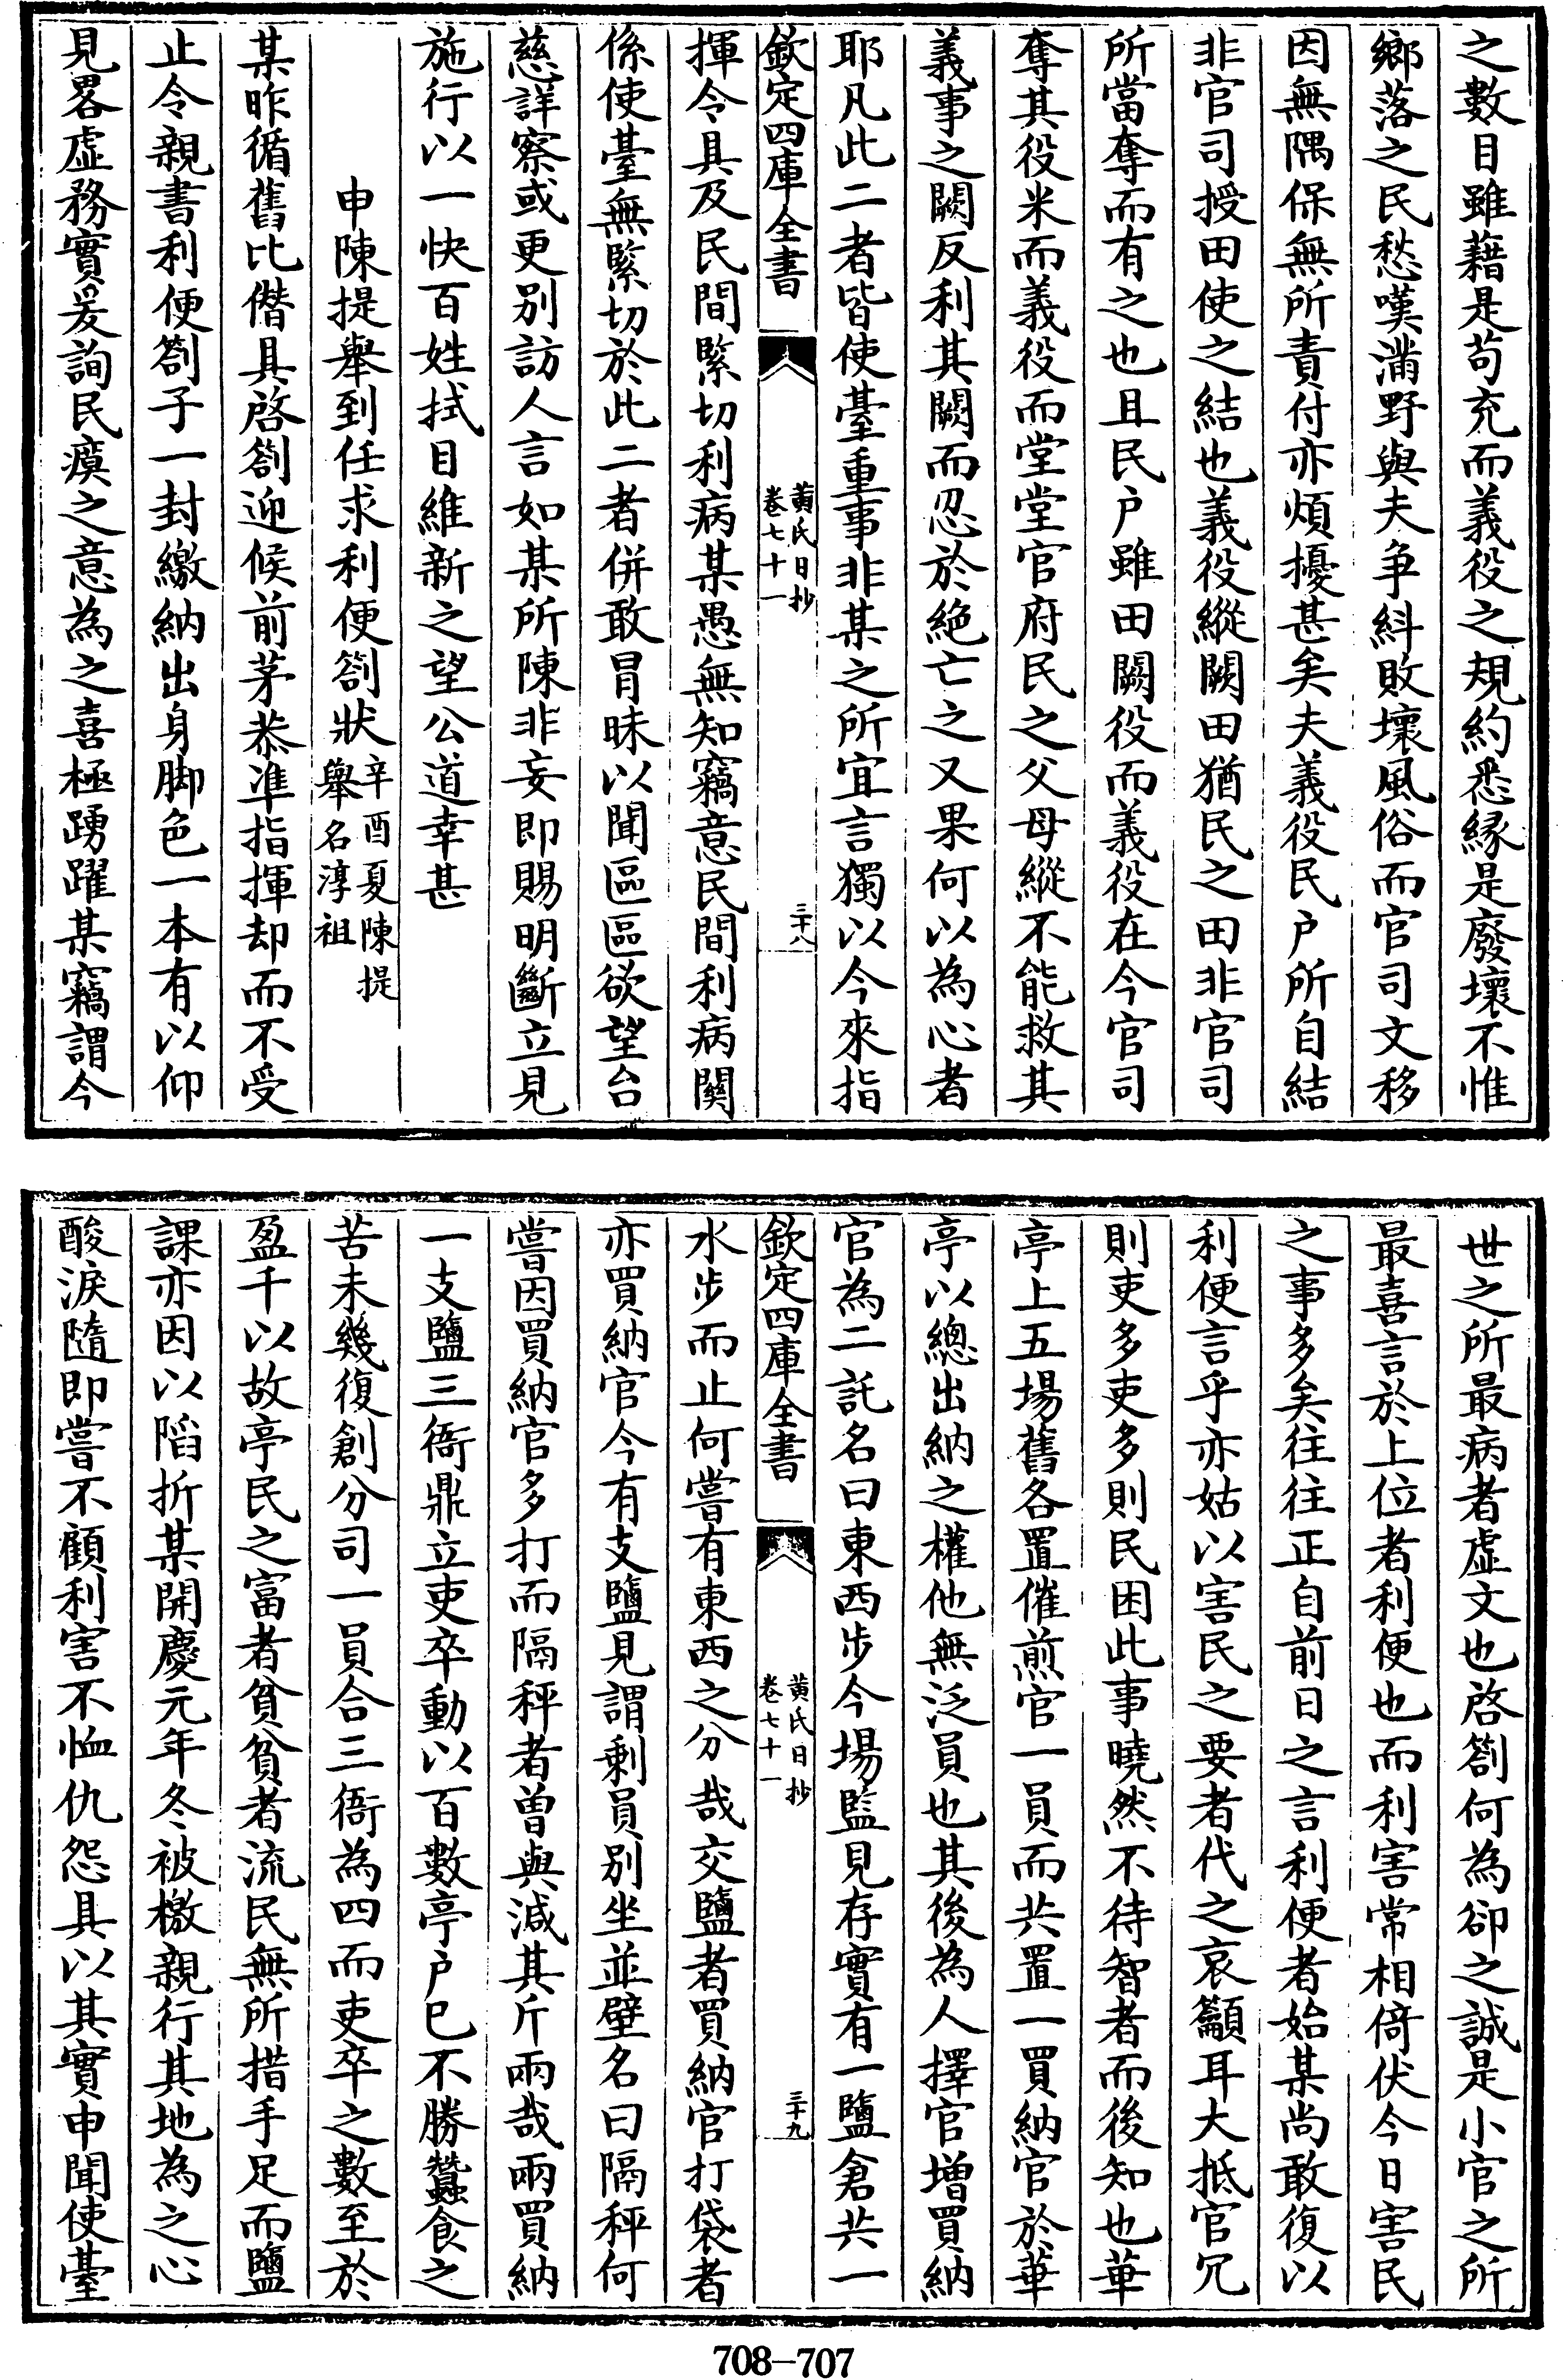 之數目雖藉是苟充而義役之規約悉縁是廢壞不惟
鄉落之民愁嘆滿野與夫爭紏敗壞風俗而官司文移
因無隅保無所責付亦煩擾甚矣夫義役民户所自結
非官司授田使之結也義役縱闕田猶民之田非官司
所當奪而有之也且民户雖田闕役而義役在今官司
奪其役米而義役而堂堂官府民之父母縱不能救其
義事之闕反利其闕而忍於絶亡之又果何以為心者
耶凡此二者皆使臺重事非某之所宜言獨以今來指
欽定四庫全書
黄氏日抄
卷七十一
三十八
揮令具及民間緊切利病某愚無知竊意民間利病闗
係使臺無緊切於此二者併敢冒昧以聞區區欲望台
慈詳察或更别訪人言如某所陳非妄即賜明斷立見
施行以一快百姓拭目維新之望公道幸甚
申陳提舉到任求利便劄狀
辛酉夏陳提
舉名淳祖
某昨循舊比僣具啓劄迎候前茅恭準指揮却而不受
止令親書利便劄子一封繳納出身脚色一本有以仰
見畧虛務實爰詢民瘼之意為之喜極踴躍某竊謂今
世之所最病者虛文也啓劄何為卻之誠是小官之所
最喜言於上位者利便也而利害常相倚伏今日害民
之事多矣往往正自前日之言利便者始某尚敢復以
利便言乎亦姑以害民之要者代之哀籲耳大抵官冗
則吏多吏多則民困此事曉然不待智者而後知也華
亭上五場舊各置催煎官一員而共置一買納官於華
亭以總出納之權他無泛員也其後為人擇官增買納
官為二託名曰東西步今場監見存實有一鹽倉共一
欽定四庫全書
黄氏日抄
卷七十一
三十九
水步而止何嘗有東西之分哉交鹽者買納官打袋者
亦買納官今有支鹽見謂剩員别坐並壁名曰隔秤何
嘗因買納官多打而隔秤者曾與減其斤兩哉兩買納
一支鹽三衙鼎立吏卒動以百數亭户巳不勝蠶食之
苦未幾復創分司一員合三衙為四而吏卒之數至於
盈千以故亭民之富者貧貧者流民無所措手足而鹽
課亦因以陷折某開慶元年冬被檄親行其地為之心
酸淚隨即嘗不顧利害不恤仇怨具以其實申聞使臺
708-707